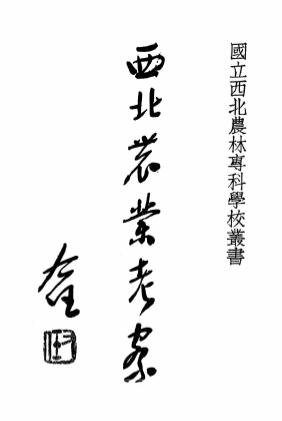 國立西北農林專科學校叢書
西北农業考察